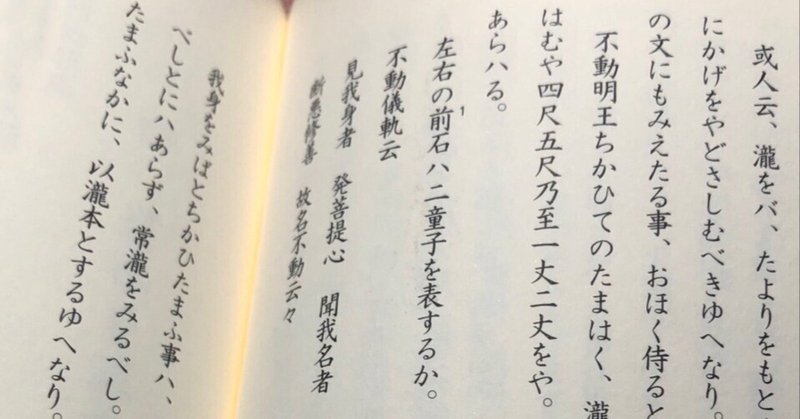 或人云、瀧をバ、たよりをもと
にかげをやどさしむべきゆへなり。
の文にもみえたる事、おほく侍ると
不動明王ちかひてのたまはく、瀧
はむや四尺五尺乃至一丈二丈をや。
あらハる。
左右の前石ハ二童子を表するか。
1
不動儀軌云
見我身者 発菩提心 聞我名者
断悪修善 故名不動云々
我身をみばとちかひたまふ事ハ、
べしとにハあらず、常瀧をみるべし。
たまふなかに、以瀧本とするゆへなり。